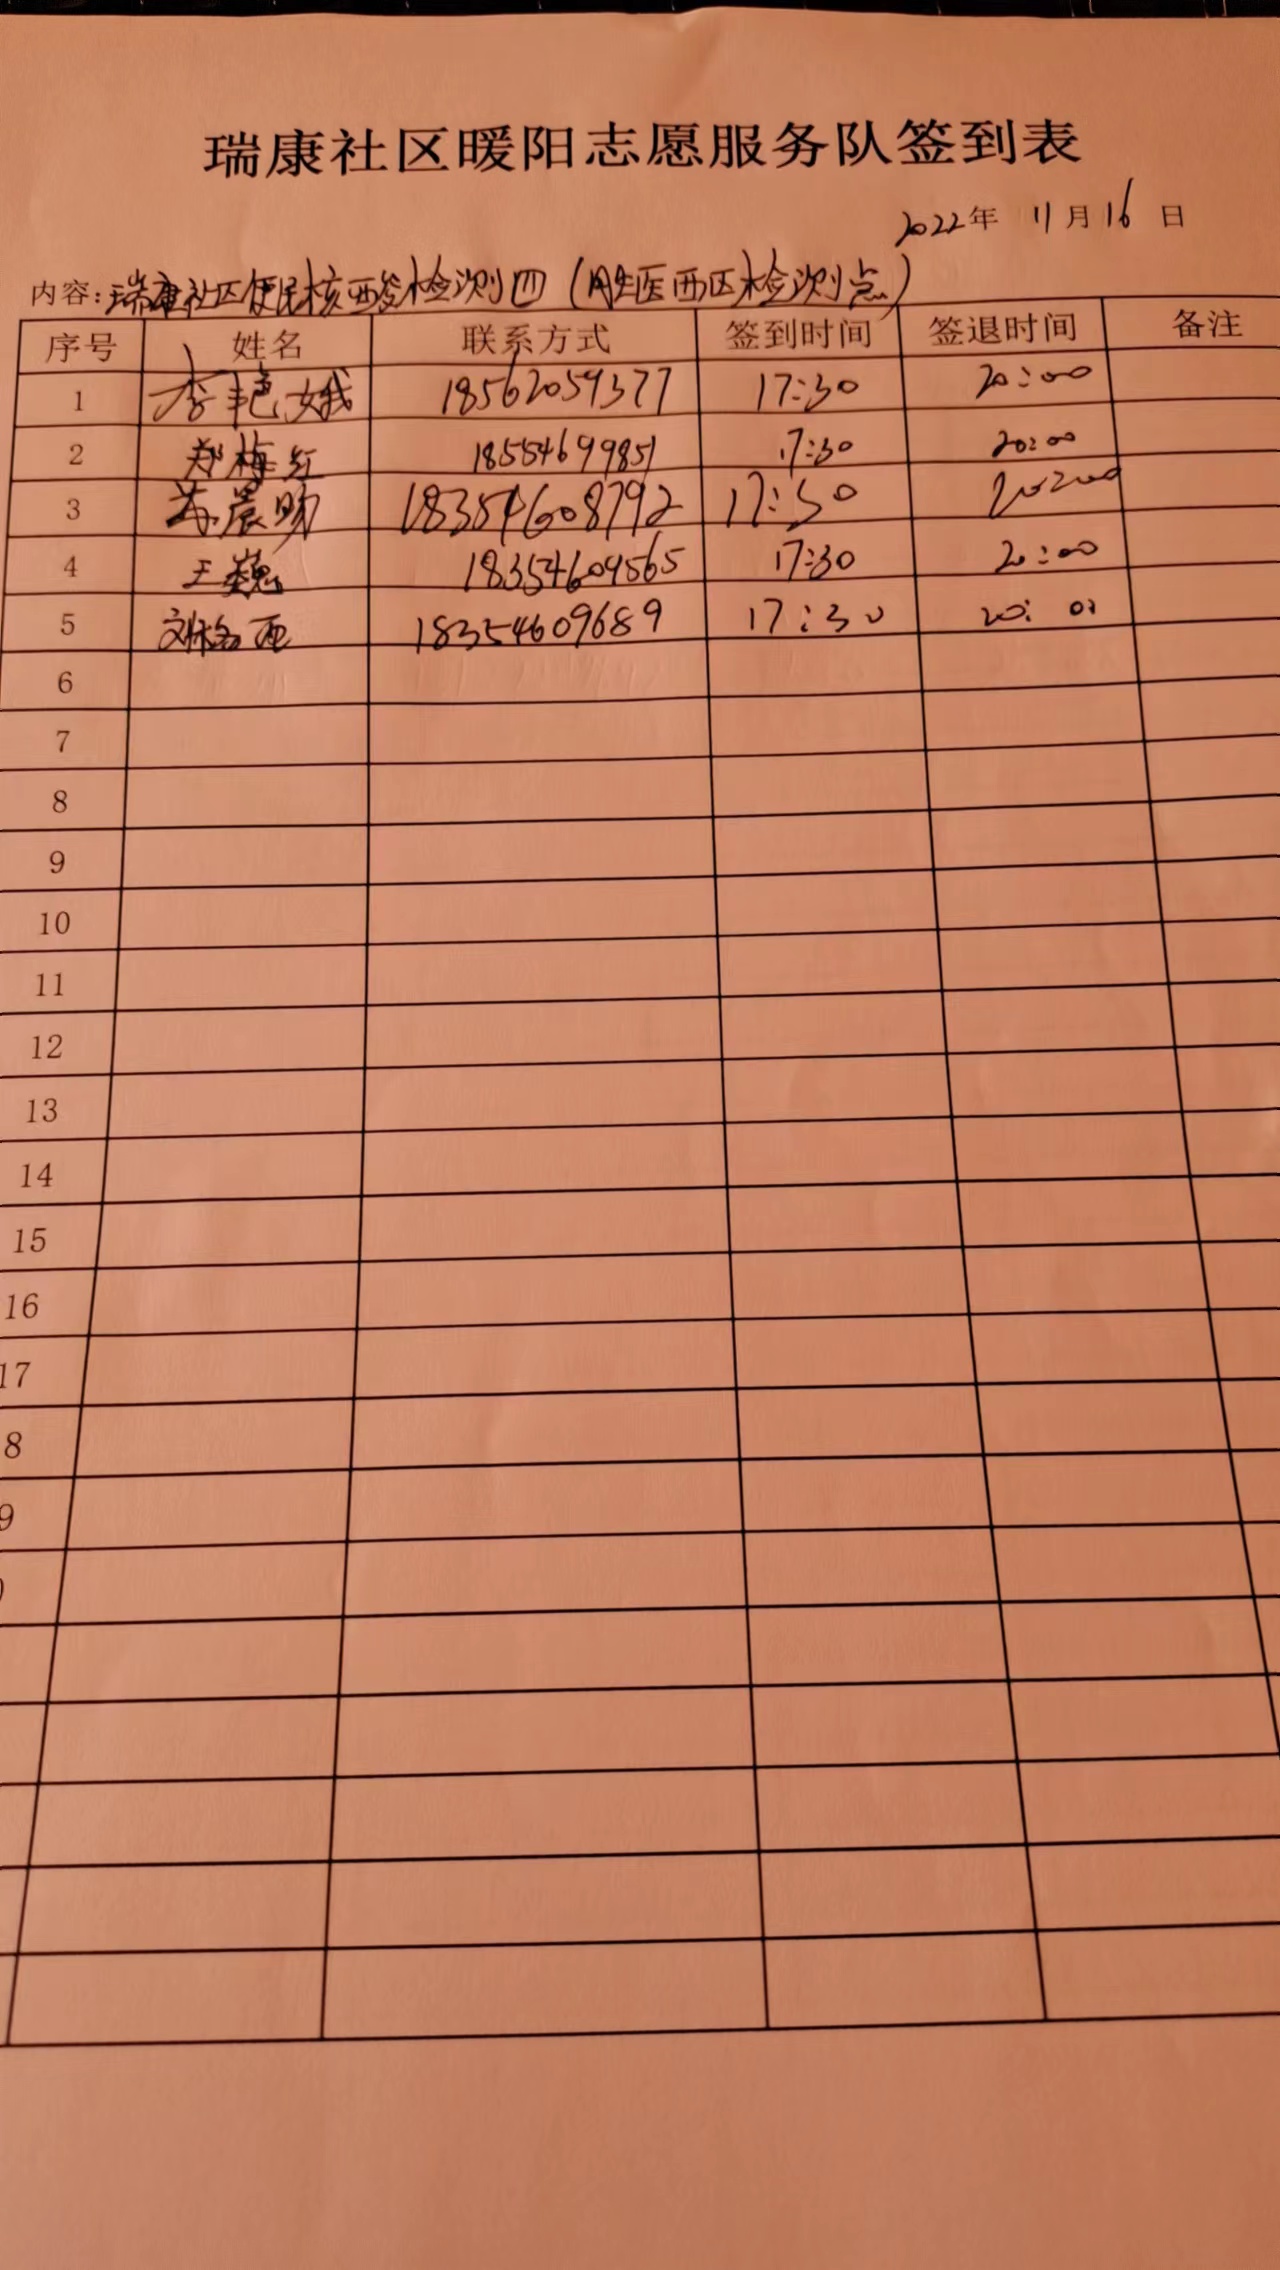 瑞康社区暖阳志愿服务队签到表
2022年 11月16日
内容:瑞康社区便民核酸检测四(胜医西区检测点)
序号 姓名 联系方式 签到时间 签退时间 备注
1 李艳娥 18562059377 17:30 20:00
2 郑梅红 18554699851 17:30 20:00
3 晨 18354608792 17:30 20:00
4 王巍 18354609565 17:30 20:00
5 刘 西 18354609689 17:30 20:
6
7
8
9
10
11
12
13
14
15
16
17
8
9